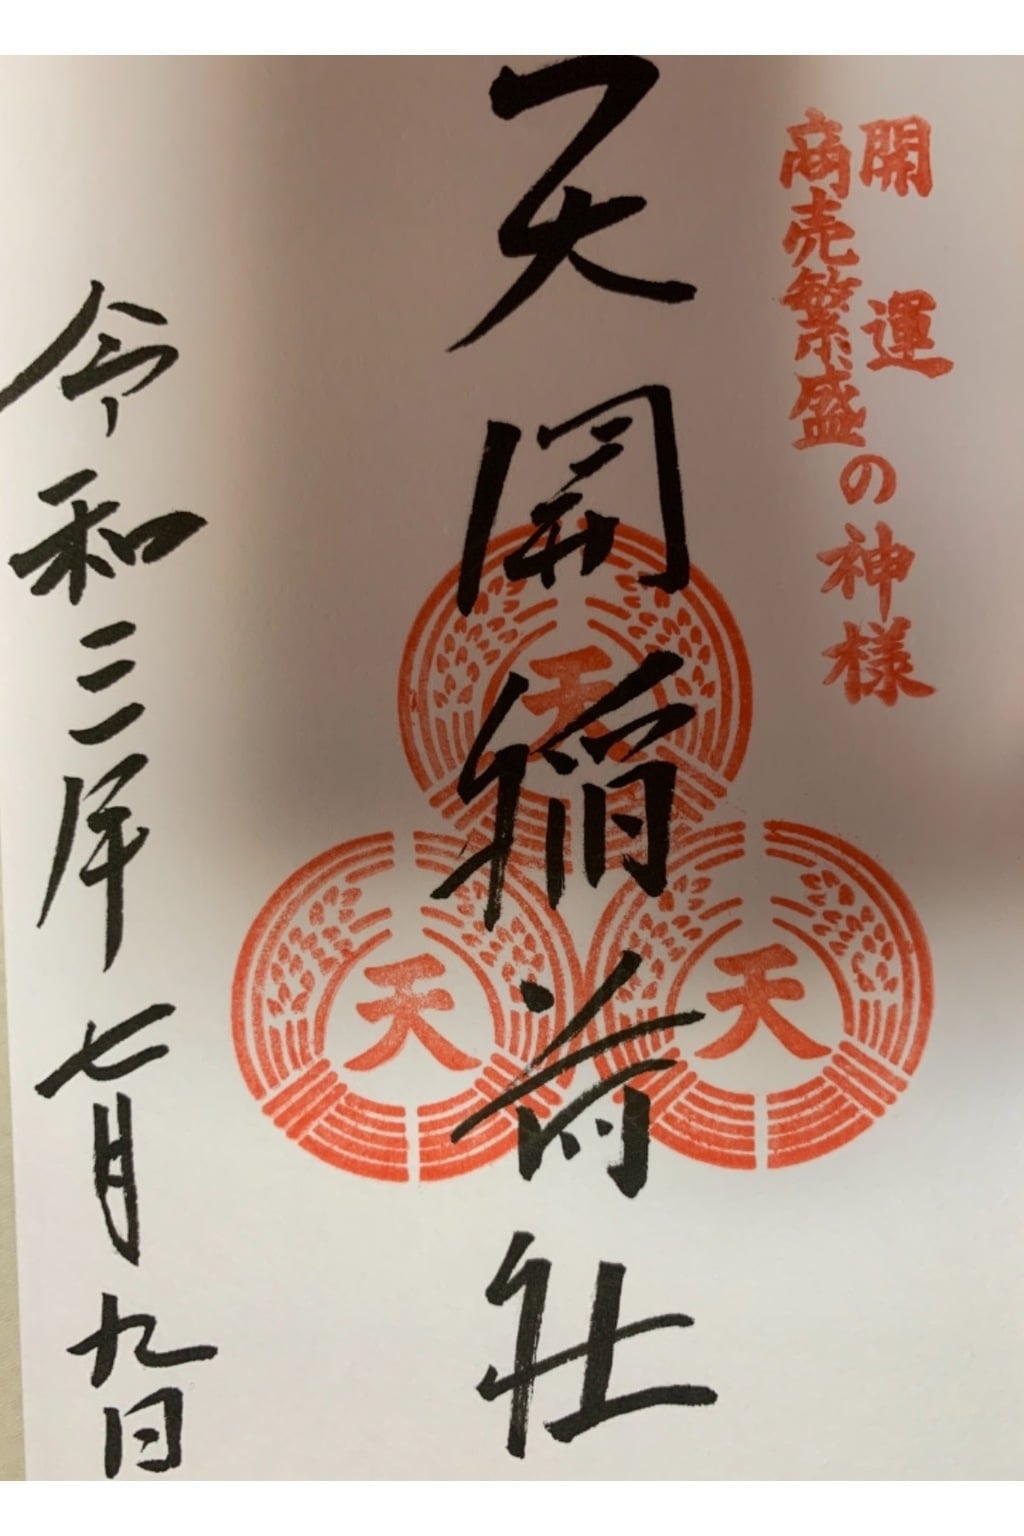 開運
商売繁盛の神様
天開稲荷社
天
天
天
令和三年七月九日